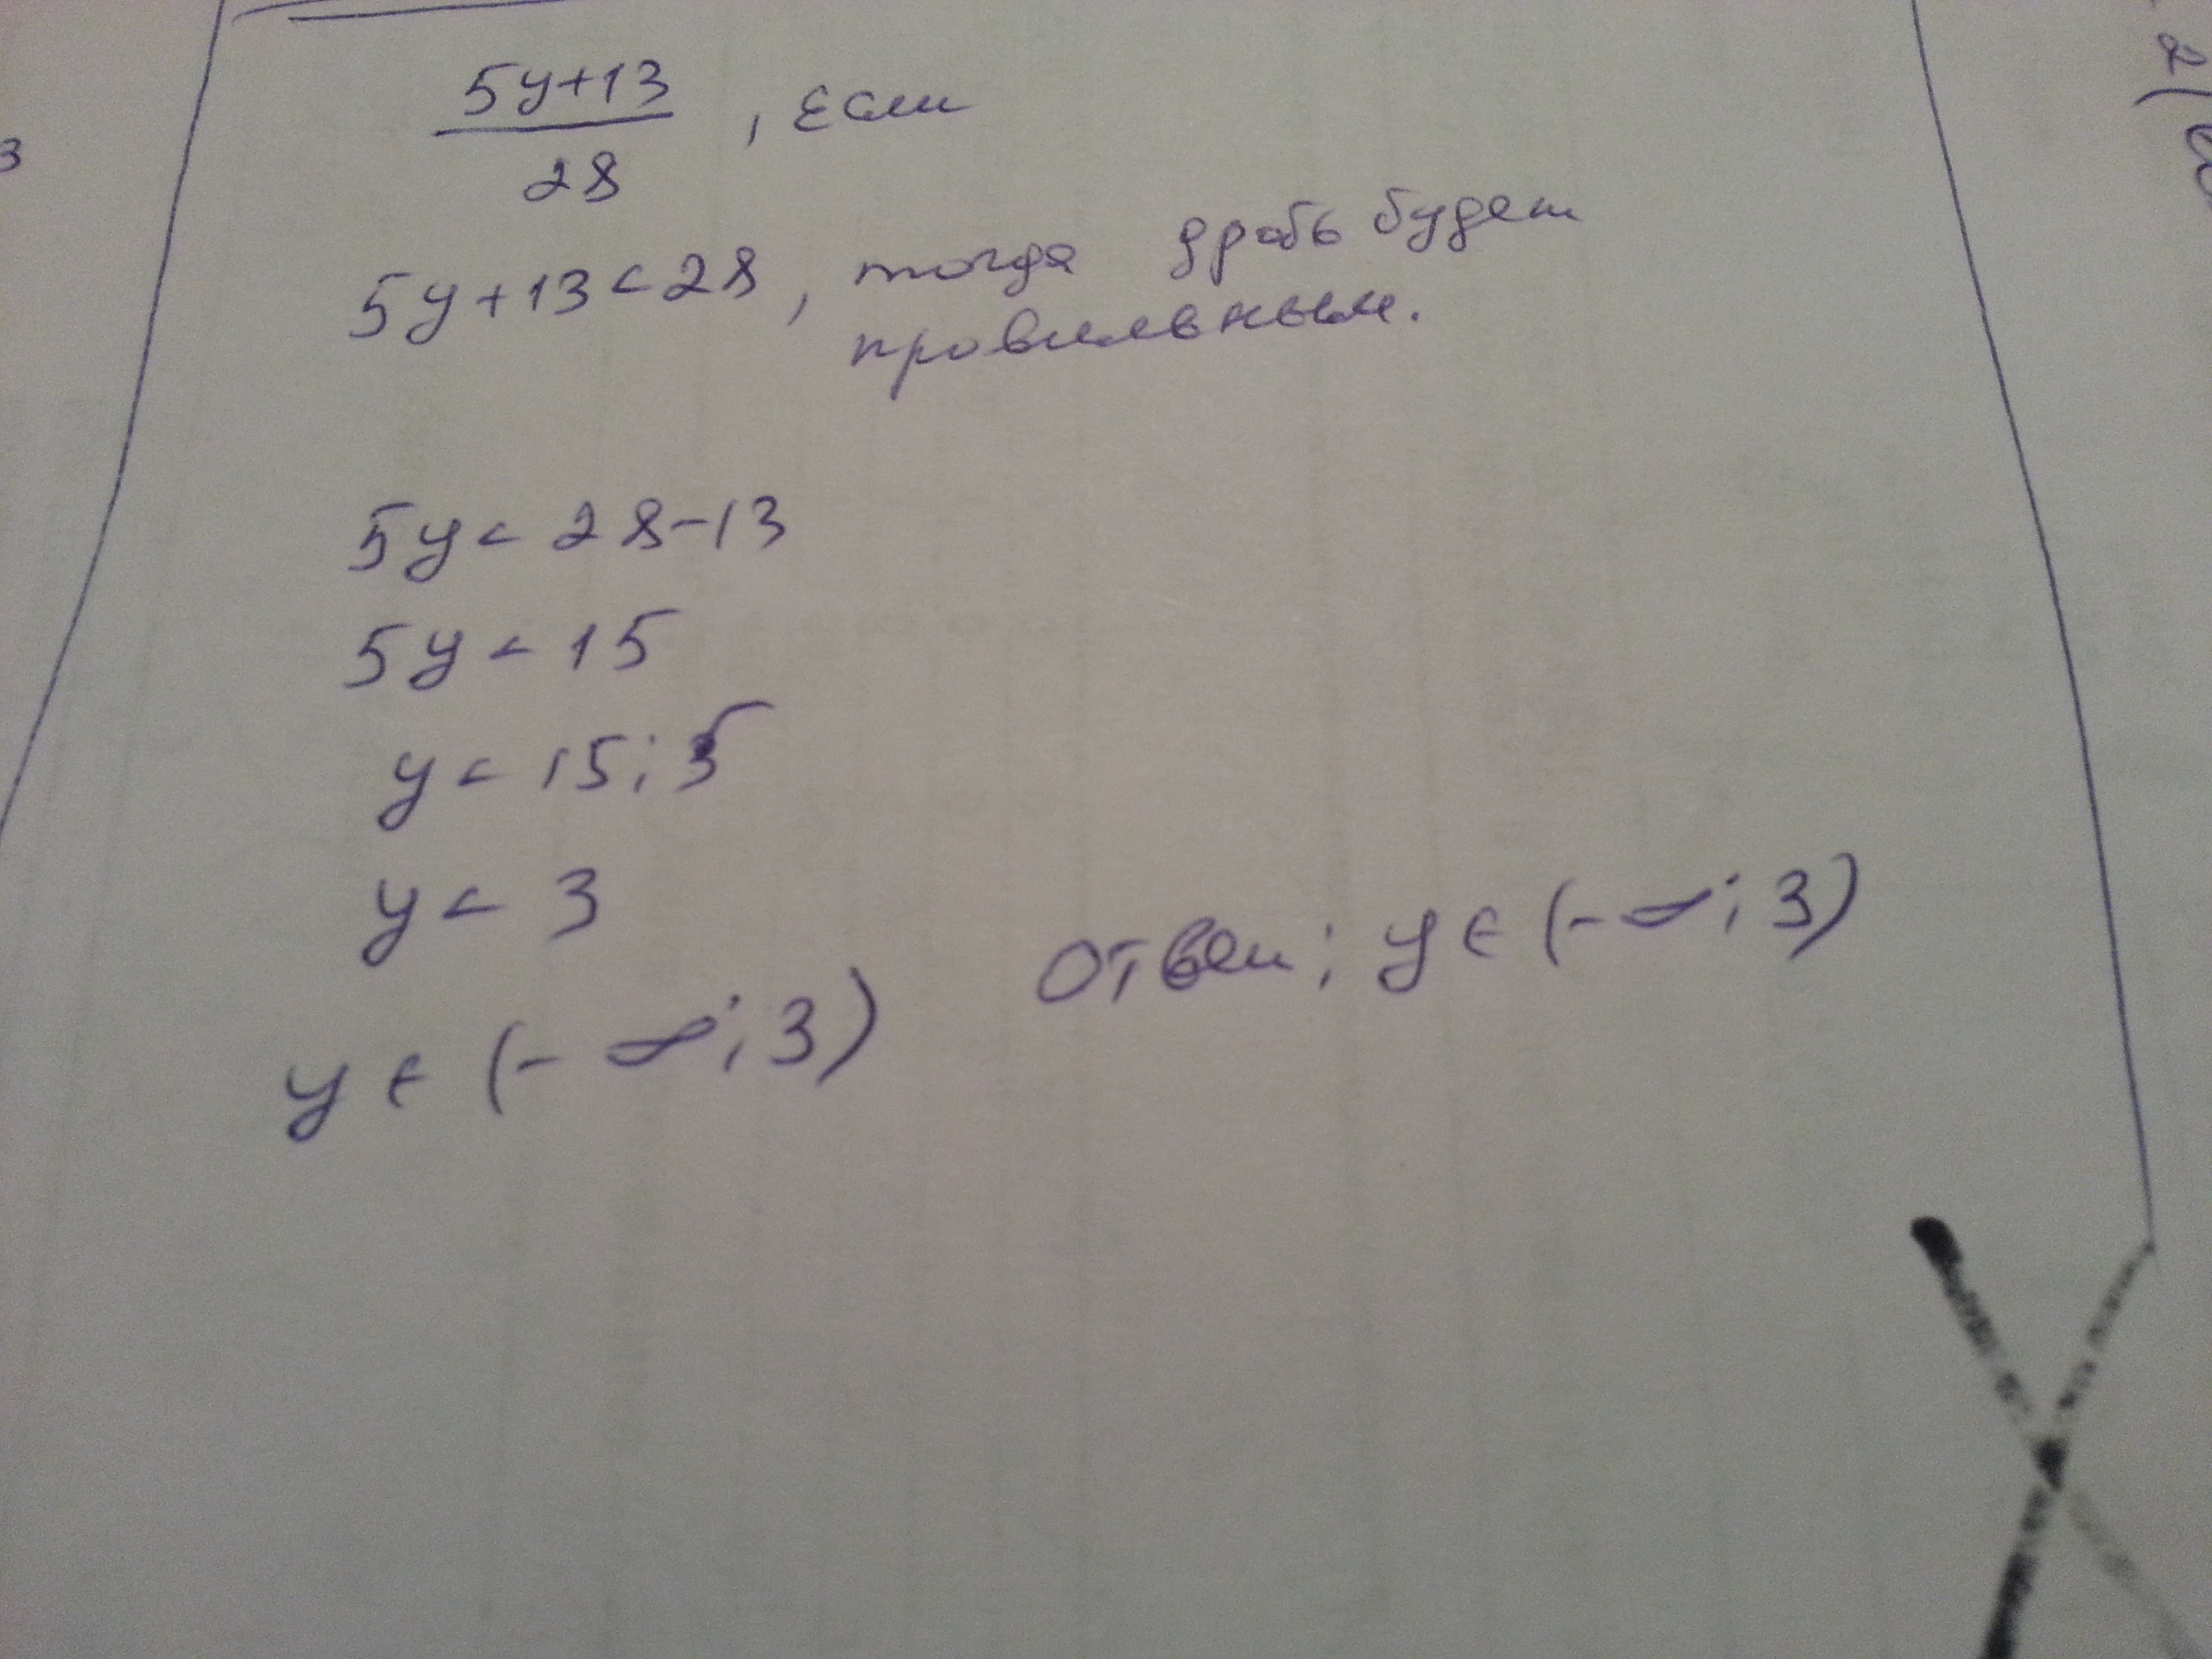 5y+13
28
, если
5y+13<28, тогда дробь будет
провильным.
5y < 28-13
5y < 15
y < 15:5
y < 3
y ∈ (-∞; 3)
Ответ: y ∈ (-∞; 3)
3
2)